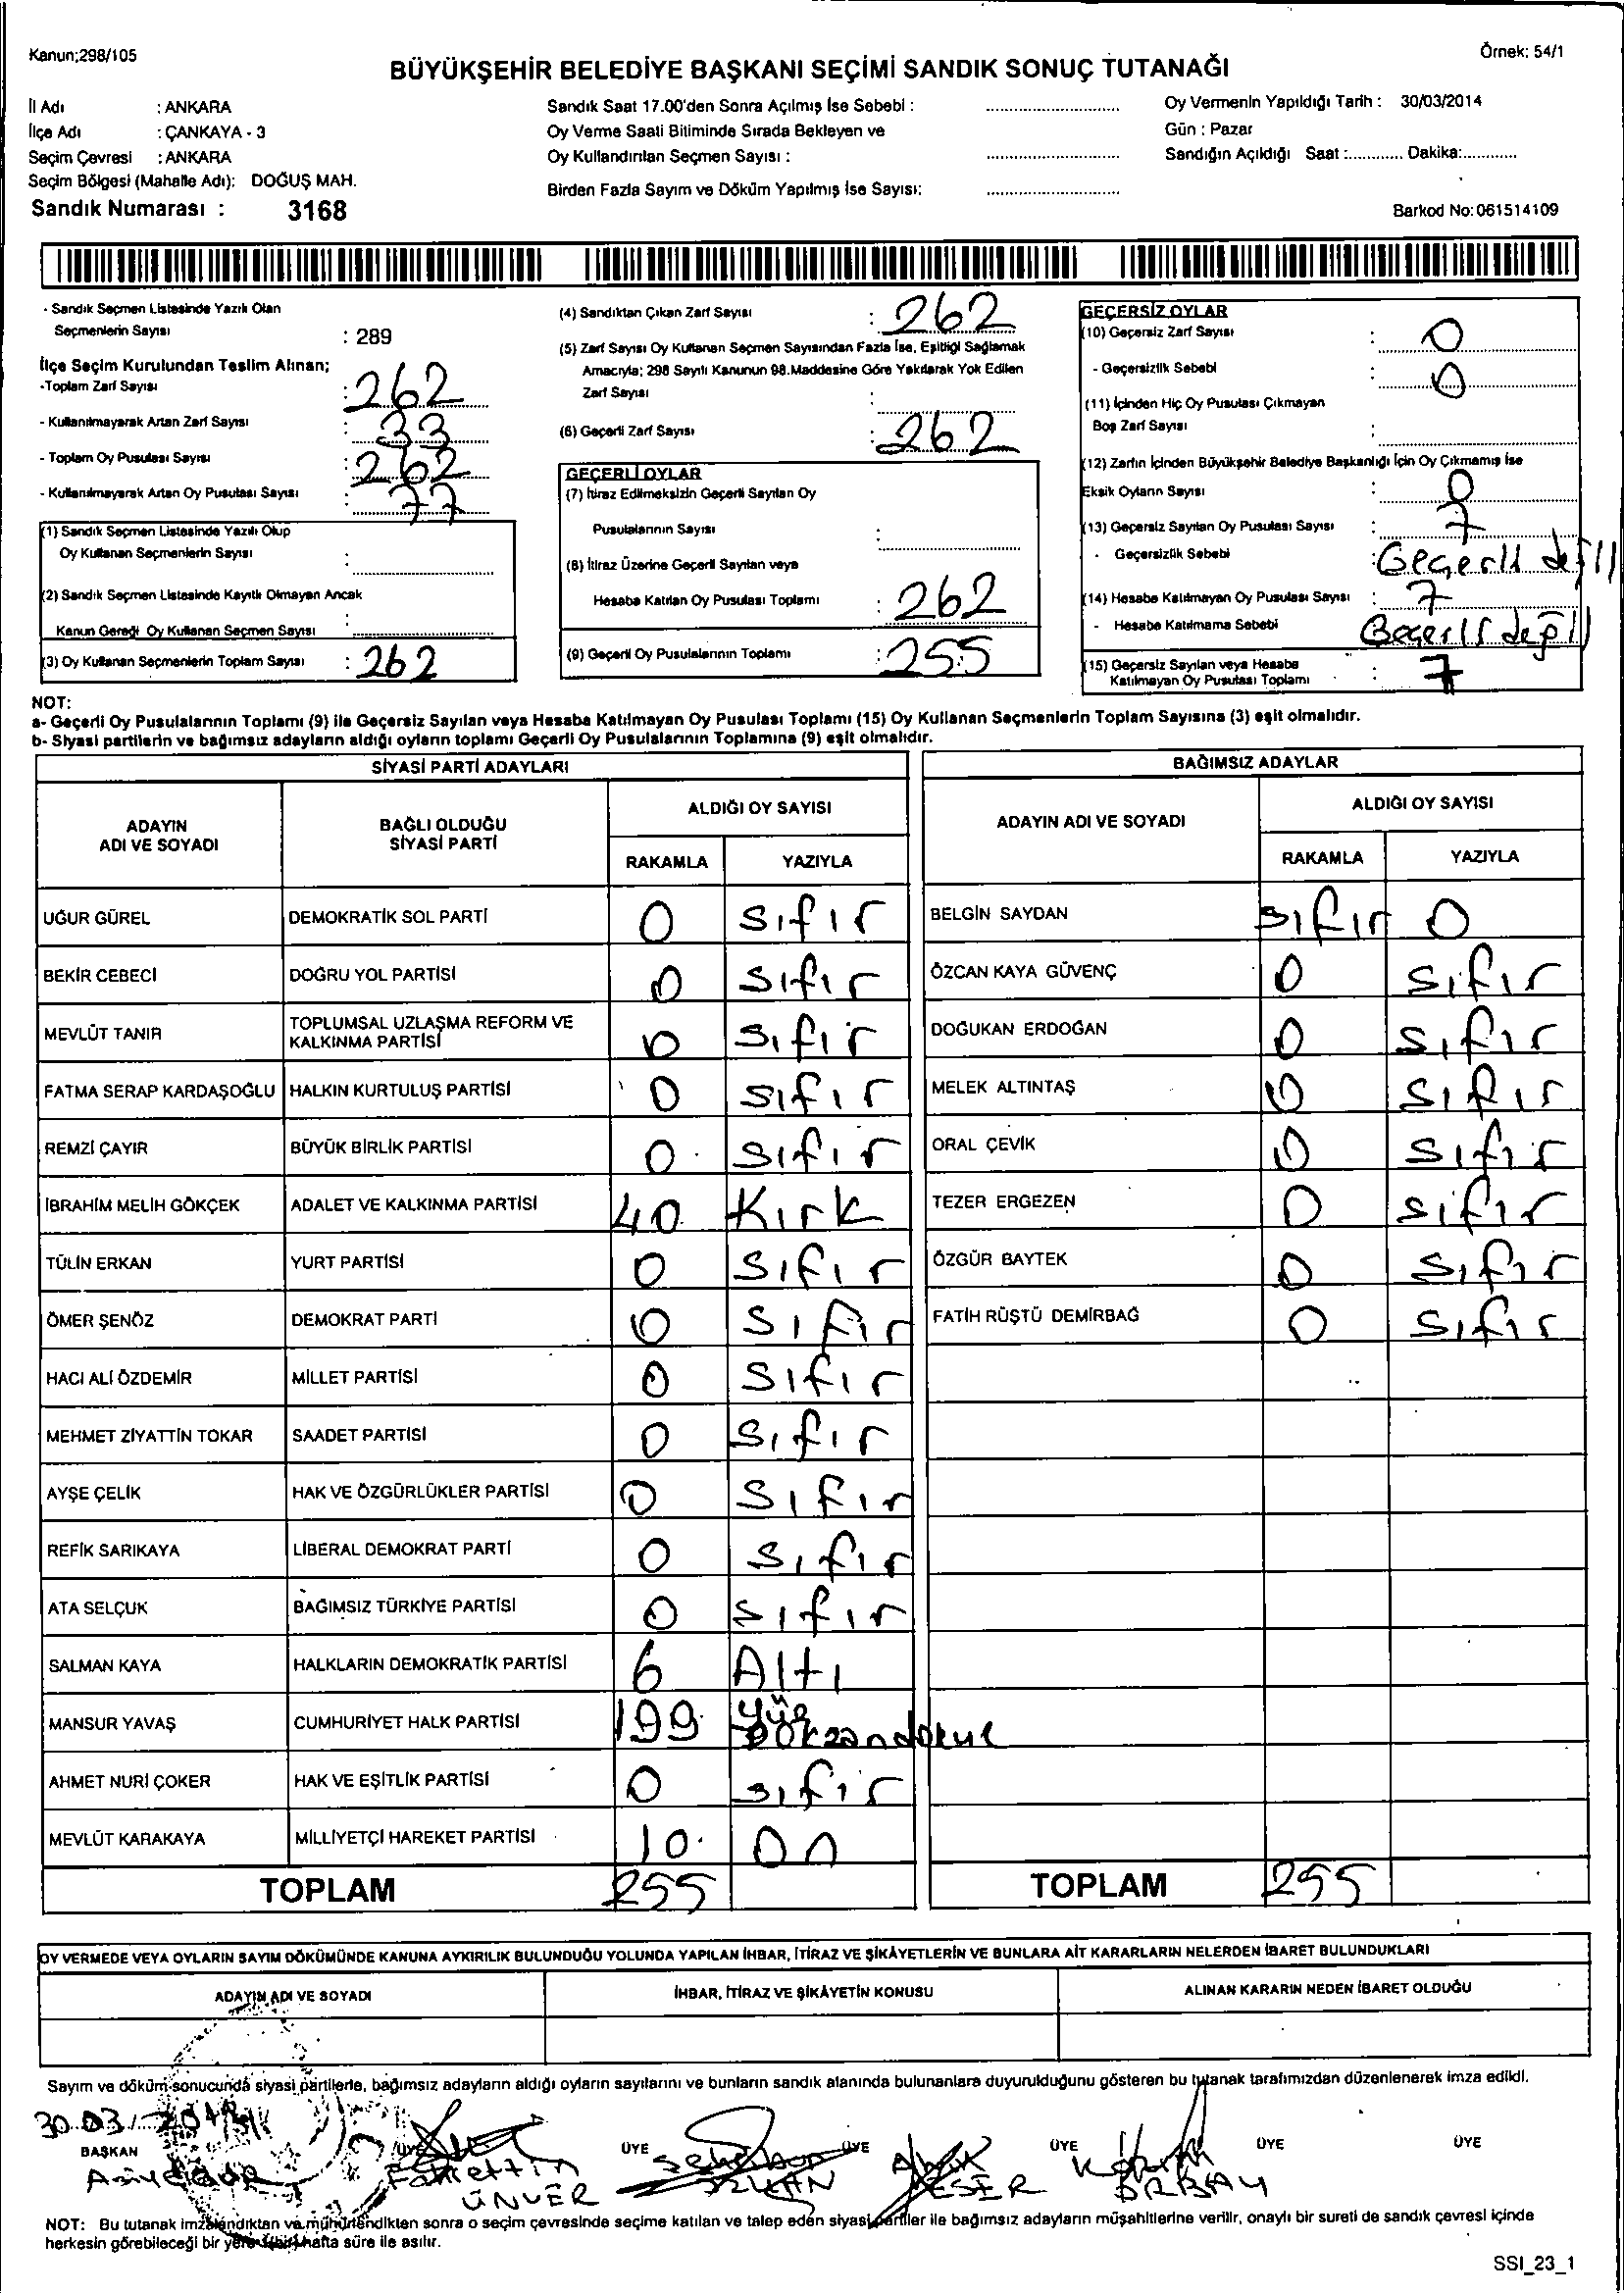 Kanun;298/105
Örnek: 54/1
BÜYÜKŞEHİR BELEDİYE BAŞKANI SEÇİMİ SANDIK SONUÇ TUTANAĞI
İl Adı : ANKARA
İlçe Adı : ÇANKAYA - 3
Seçim Çevresi : ANKARA
Seçim Bölgesi (Mahalle Adı): DOĞUŞ MAH.
Sandık Numarası : 3168
Sandık Saat 17.00'den Sonra Açılmış İse Sebebi :
Oy Verme Saati Bitiminde Sırada Bekleyen ve
Oy Kullandırılan Seçmen Sayısı :
Birden Fazla Sayım ve Döküm Yapılmış İse Sayısı:
Oy Vermenin Yapıldığı Tarih : 30/03/2014
Gün : Pazar
Sandığın Açıldığı Saat :............ Dakika:...........
Barkod No:061514109
- Sandık Seçmen Listesinde Yazılı Olan
Seçmenlerin Sayısı : 289
İlçe Seçim Kurulundan Teslim Alınan;
-Toplam Zarf Sayısı : 262
- Kullanılmayarak Artan Zarf Sayısı : 33
- Toplam Oy Pusulası Sayısı : 262
- Kullanılmayarak Artan Oy Pusulası Sayısı : 77
(1) Sandık Seçmen Listesinde Yazılı Olup
Oy Kullanan Seçmenlerin Sayısı :
(2) Sandık Seçmen Listesinde Kayıtlı Olmayan Ancak
Kanun Gereği Oy Kullanan Seçmen Sayısı :
(3) Oy Kullanan Seçmenlerin Toplam Sayısı : 262
(4) Sandıktan Çıkan Zarf Sayısı : 262
(5) Zarf Sayısı Oy Kullanan Seçmen Sayısından Fazla İse, Eşitliği Sağlamak
Amacıyla; 298 Sayılı Kanunun 98.Maddesine Göre Yakılarak Yok Edilen
Zarf Sayısı :
(6) Geçerli Zarf Sayısı : 262
GEÇERLİ OYLAR
(7) İtiraz Edilmeksizin Geçerli Sayılan Oy
Pusulalarının Sayısı :
(8) İtiraz Üzerine Geçerli Sayılan veya
Hesaba Katılan Oy Pusulası Toplamı : 262
(9) Geçerli Oy Pusulalarının Toplamı : 255
GEÇERSİZ OYLAR
(10) Geçersiz Zarf Sayısı : 0
- Geçersizlik Sebebi : 0
(11) İçinden Hiç Oy Pusulası Çıkmayan
Boş Zarf Sayısı :
(12) Zarfın İçinden Büyükşehir Belediye Başkanlığı İçin Oy Çıkmamış İse
Eksik Oyların Sayısı : 0
(13) Geçersiz Sayılan Oy Pusulası Sayısı : 7
- Geçersizlik Sebebi : Geçerli değil
(14) Hesaba Katılmayan Oy Pusulası Sayısı : 7
- Hesaba Katılmama Sebebi : Geçerli değil
(15) Geçersiz Sayılan veya Hesaba
Katılmayan Oy Pusulası Toplamı : 7
NOT:
a- Geçerli Oy Pusulalarının Toplamı (9) ile Geçersiz Sayılan veya Hesaba Katılmayan Oy Pusulası Toplamı (15) Oy Kullanan Seçmenlerin Toplam Sayısına (3) eşit olmalıdır.
b- Siyasi partilerin ve bağımsız adayların aldığı oyların toplamı Geçerli Oy Pusulalarının Toplamına (9) eşit olmalıdır.
SİYASİ PARTİ ADAYLARI
ADAYIN ADI VE SOYADI BAĞLI OLDUĞU SİYASİ PARTİ ALDIĞI OY SAYISI
RAKAMLA YAZIYLA
UĞUR GÜREL DEMOKRATİK SOL PARTİ 0 sıfır
BEKİR CEBECİ DOĞRU YOL PARTİSİ 0 sıfır
MEVLÜT TANIR TOPLUMSAL UZLAŞMA REFORM VE KALKINMA PARTİSİ 0 sıfır
FATMA SERAP KARDAŞOĞLU HALKIN KURTULUŞ PARTİSİ 0 sıfır
REMZİ ÇAYIR BÜYÜK BİRLİK PARTİSİ 0 sıfır
İBRAHİM MELİH GÖKÇEK ADALET VE KALKINMA PARTİSİ 40 Kırk
TÜLİN ERKAN YURT PARTİSİ 0 sıfır
ÖMER ŞENÖZ DEMOKRAT PARTİ 0 sıfır
HACI ALİ ÖZDEMİR MİLLET PARTİSİ 0 sıfır
MEHMET ZİYATTİN TOKAR SAADET PARTİSİ 0 sıfır
AYŞE ÇELİK HAK VE ÖZGÜRLÜKLER PARTİSİ 0 sıfır
REFİK SARIKAYA LİBERAL DEMOKRAT PARTİ 0 sıfır
ATA SELÇUK BAĞIMSIZ TÜRKİYE PARTİSİ 0 sıfır
SALMAN KAYA HALKLARIN DEMOKRATİK PARTİSİ 6 Altı
MANSUR YAVAŞ CUMHURİYET HALK PARTİSİ 199 yüz
AHMET NURİ ÇOKER HAK VE EŞİTLİK PARTİSİ 0 sıfır
MEVLÜT KARAKAYA MİLLİYETÇİ HAREKET PARTİSİ 10 On
TOPLAM 255
BAĞIMSIZ ADAYLAR
ADAYIN ADI VE SOYADI ALDIĞI OY SAYISI
RAKAMLA YAZIYLA
BELGİN SAYDAN sıfır 0
ÖZCAN KAYA GÜVENÇ 0 sıfır
DOĞUKAN ERDOĞAN 0 sıfır
MELEK ALTINTAŞ 0 sıfır
ORAL ÇEVİK 0 sıfır
TEZER ERGEZEN 0 sıfır
ÖZGÜR BAYTEK 0 sıfır
FATİH RÜŞTÜ DEMİRBAĞ 0 sıfır
TOPLAM 255
OY VERMEDE VEYA OYLARIN SAYIM DÖKÜMÜNDE KANUNA AYKIRILIK BULUNDUĞU YOLUNDA YAPILAN İHBAR, İTİRAZ VE ŞİKÂYETLERİN VE BUNLARA AİT KARARLARIN NELERDEN İBARET BULUNDUKLARI
ADAYIN ADI VE SOYADI İHBAR, İTİRAZ VE ŞİKÂYETİN KONUSU ALINAN KARARIN NEDEN İBARET OLDUĞU
Sayım ve döküm sonucunda siyasi partilerle, bağımsız adayların aldığı oyların sayılarını ve bunların sandık alanında bulunanlara duyurulduğunu gösteren bu tutanak tarafımızdan düzenlenerek imza edildi.
30.03.2014
BAŞKAN ÜYE ÜYE ÜYE ÜYE ÜYE ÜYE
Fahrettin ÜNVER
ÖZKAN
ESER
ORBAY
NOT: Bu tutanak imzalandıktan ve mühürlendikten sonra o seçim çevresinde seçime katılan ve talep eden siyasi partiler ile bağımsız adayların müşahitlerine verilir, onaylı bir sureti de sandık çevresi içinde
herkesin görebileceği bir yere bir hafta süre ile asılır.
SSI_23_1